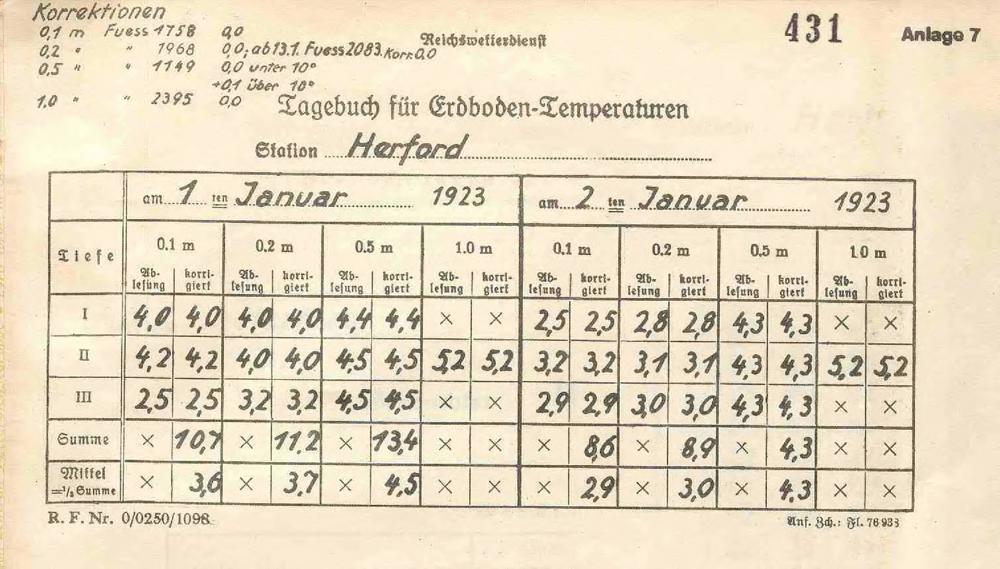 Korrektionen
0,1 m Fuess 1758 0,0
0,2 " " 1968 0,0; ab 13.1. Fuess 2083. Korr. 0,0
0,5 " " 1149 0,0 unter 10°
+0,1 über 10°
1.0 " " 2395 0,0
Reichswetterdienst
431
Anlage 7
Tagebuch für Erdboden-Temperaturen
Station Herford
am 1 ten Januar 1923 am 2 ten Januar 1923
Tiefe 0.1 m 0.2 m 0.5 m 1.0 m 0.1 m 0.2 m 0.5 m 1.0 m
Ab- korri- Ab- korri- Ab- korri- Ab- korri- Ab- korri- Ab- korri- Ab- korri- Ab- korri-
lesung giert lesung giert lesung giert lesung giert lesung giert lesung giert lesung giert lesung giert
I 4,0 4,0 4,0 4,0 4,4 4,4 × × 2,5 2,5 2,8 2,8 4,3 4,3 × ×
II 4,2 4,2 4,0 4,0 4,5 4,5 5,2 5,2 3,2 3,2 3,1 3,1 4,3 4,3 5,2 5,2
III 2,5 2,5 3,2 3,2 4,5 4,5 × × 2,9 2,9 3,0 3,0 4,3 4,3 × ×
Summe × 10,7 × 11,2 × 13,4 × × × 8,6 × 8,9 × 4,3 × ×
Mittel × 3,6 × 3,7 × 4,5 × × × 2,9 × 3,0 × 4,3 × ×
=⅓ Summe
R. F. Nr. 0/0250/1098
Anf. Zch.: Fl. 76 933